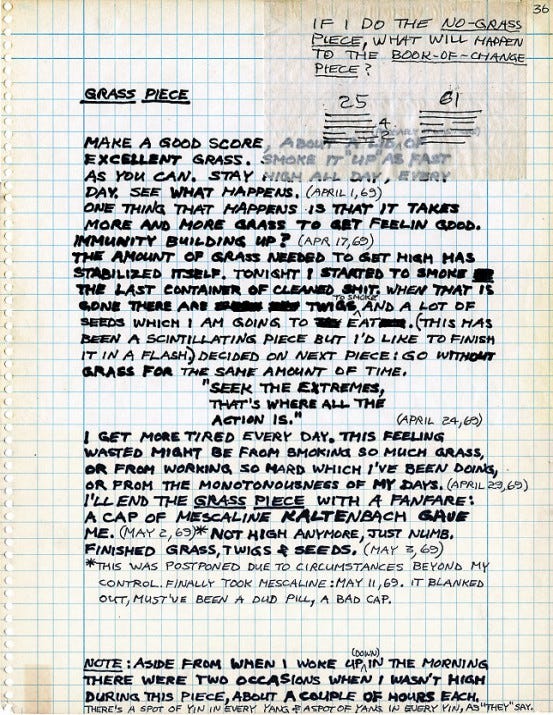 36
IF I DO THE NO-GRASS
PIECE, WHAT WILL HAPPEN
TO THE BOOK-OF-CHANGE
PIECE?
25 61
4
2
GRASS PIECE
MAKE A GOOD SCORE, ABOUT A LID OF
EXCELLENT GRASS. SMOKE IT UP AS FAST
AS YOU CAN. STAY HIGH ALL DAY, EVERY
DAY. SEE WHAT HAPPENS. (APRIL 1, 69)
ONE THING THAT HAPPENS IS THAT IT TAKES
MORE AND MORE GRASS TO GET FEELIN GOOD.
IMMUNITY BUILDING UP? (APR 17, 69)
THE AMOUNT OF GRASS NEEDED TO GET HIGH HAS
STABILIZED ITSELF. TONIGHT I STARTED TO SMOKE
THE LAST CONTAINER OF CLEANED SHIT. WHEN THAT IS
TO SMOKE
GONE THERE ARE TWIGS AND A LOT OF
SEEDS WHICH I AM GOING TO EAT. (THIS HAS
BEEN A SCINTILLATING PIECE BUT I'D LIKE TO FINISH
IT IN A FLASH) DECIDED ON NEXT PIECE: GO WITHOUT
GRASS FOR THE SAME AMOUNT OF TIME.
"SEEK THE EXTREMES,
THAT'S WHERE ALL THE
ACTION IS." (APRIL 24, 69)
I GET MORE TIRED EVERY DAY. THIS FEELING
WASTED MIGHT BE FROM SMOKING SO MUCH GRASS,
OR FROM WORKING SO HARD WHICH I'VE BEEN DOING,
OR FROM THE MONOTONOUSNESS OF MY DAYS. (APRIL 29, 69)
I'LL END THE GRASS PIECE WITH A FANFARE:
A CAP OF MESCALINE KALTENBACH GAVE
ME. (MAY 2, 69)* NOT HIGH ANYMORE, JUST NUMB.
FINISHED GRASS, TWIGS & SEEDS. (MAY 3, 69)
*THIS WAS POSTPONED DUE TO CIRCUMSTANCES BEYOND MY
CONTROL. FINALLY TOOK MESCALINE: MAY 11, 69. IT BLANKED
OUT, MUST'VE BEEN A DUD PILL, A BAD CAP.
(DOWN)
NOTE: ASIDE FROM WHEN I WOKE UP IN THE MORNING
THERE WERE TWO OCCASIONS WHEN I WASN'T HIGH
DURING THIS PIECE, ABOUT A COUPLE OF HOURS EACH.
THERE'S A SPOT OF YIN IN EVERY YANG & A SPOT OF YANG IN EVERY YIN, AS "THEY" SAY.